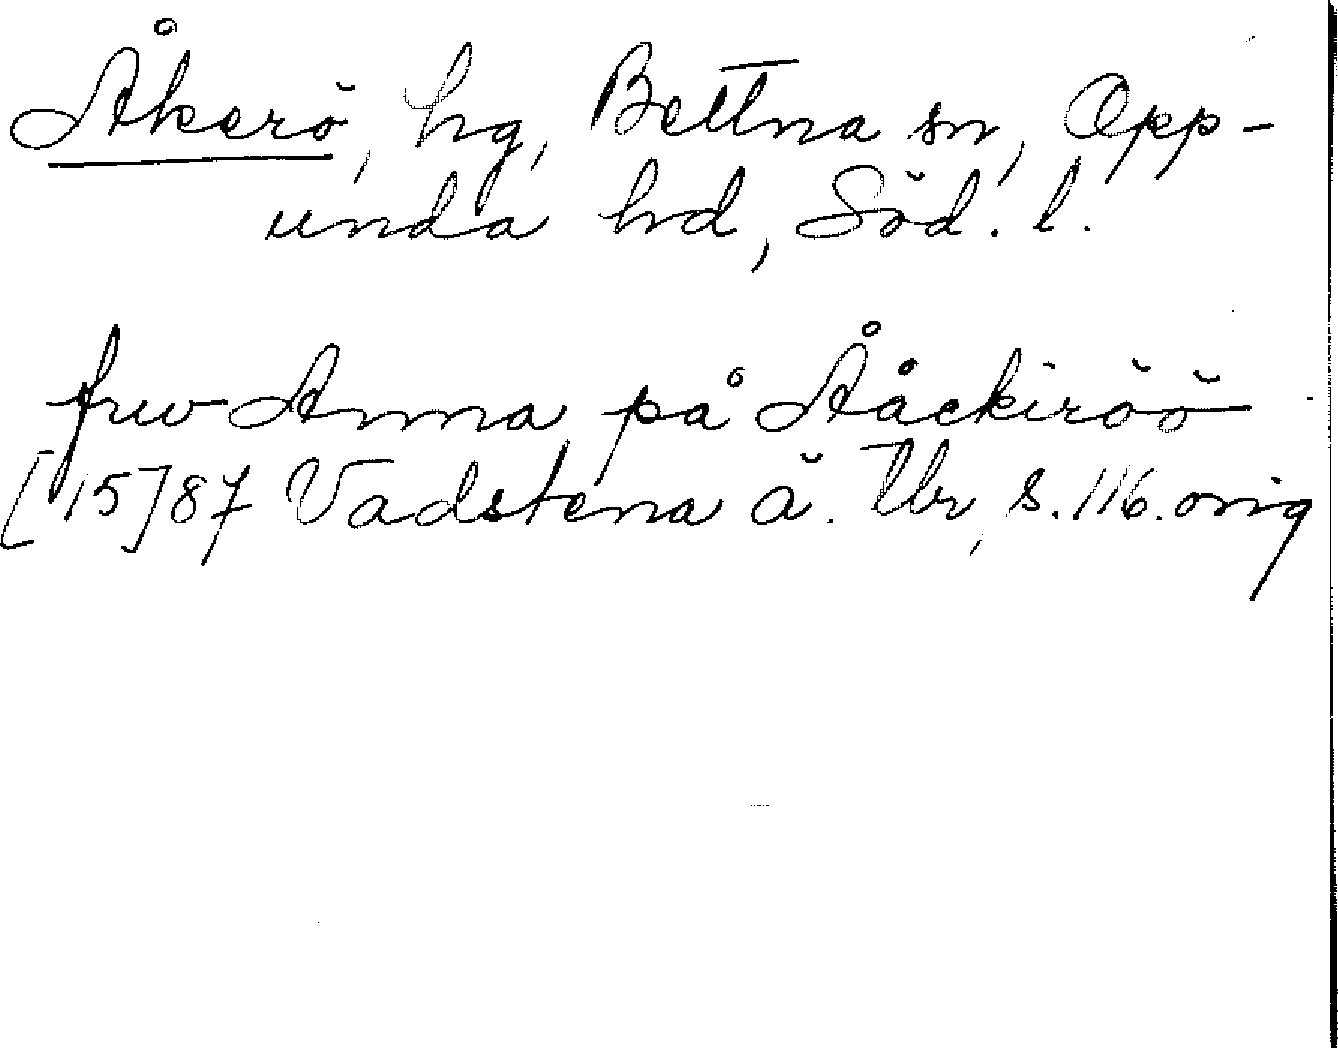 Åkerö, hg, Bettna sn, Opp-
unda hd, Söd. l.
fru Anna på Ååckiröö
[15]87 Vadstena ä. Tbr, s. 116. orig